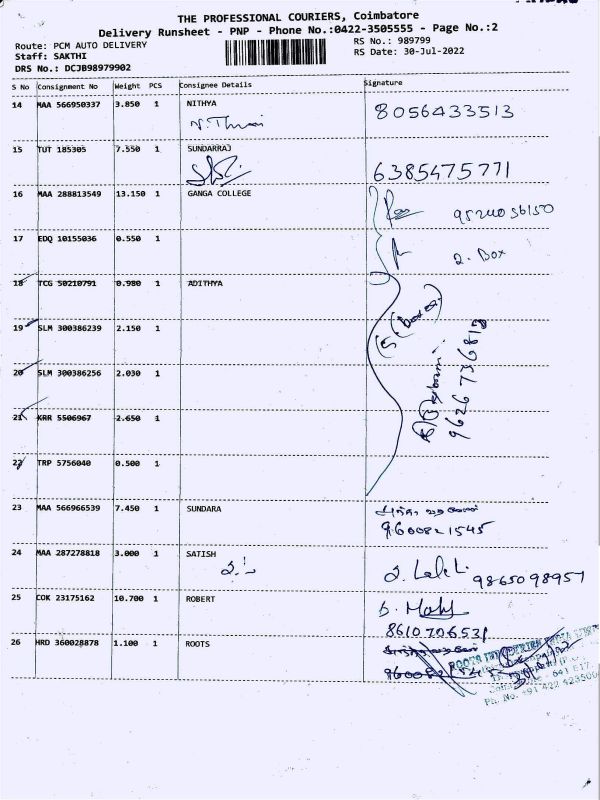 THE PROFESSIONAL COURIERS, Coimbatore
Delivery Runsheet - PNP - Phone No.:0422-3505555 - Page No.:2
Route: PCM AUTO DELIVERY
RS No.: 989799
Staff: SAKTHI
RS Date: 30-Jul-2022
DRS No.: DCJB98979902
S No Consignment No Weight PCS Consignee Details Signature
14 MAA 566950337 3.850 1 NITHYA
8056433513
15 TUT 185305 7.550 1 SUNDARRAJ
6385475771
16 MAA 288813549 13.150 1 GANGA COLLEGE
17 EDQ 10155036 0.550 1
2. Box
18 TCG 50210791 0.980 1 ADITHYA
19 SLM 300386239 2.150 1
20 SLM 300386256 2.030 1
21 KRR 5506967 2.650 1
9626736813
22 TRP 5756040 0.500 1
23 MAA 566966539 7.450 1 SUNDARA
9600821545
24 MAA 287278818 3.000 1 SATISH
9865098957
25 COK 23175162 10.700 1 ROBERT
8610706531
26 HRD 360028878 1.100 1 ROOTS